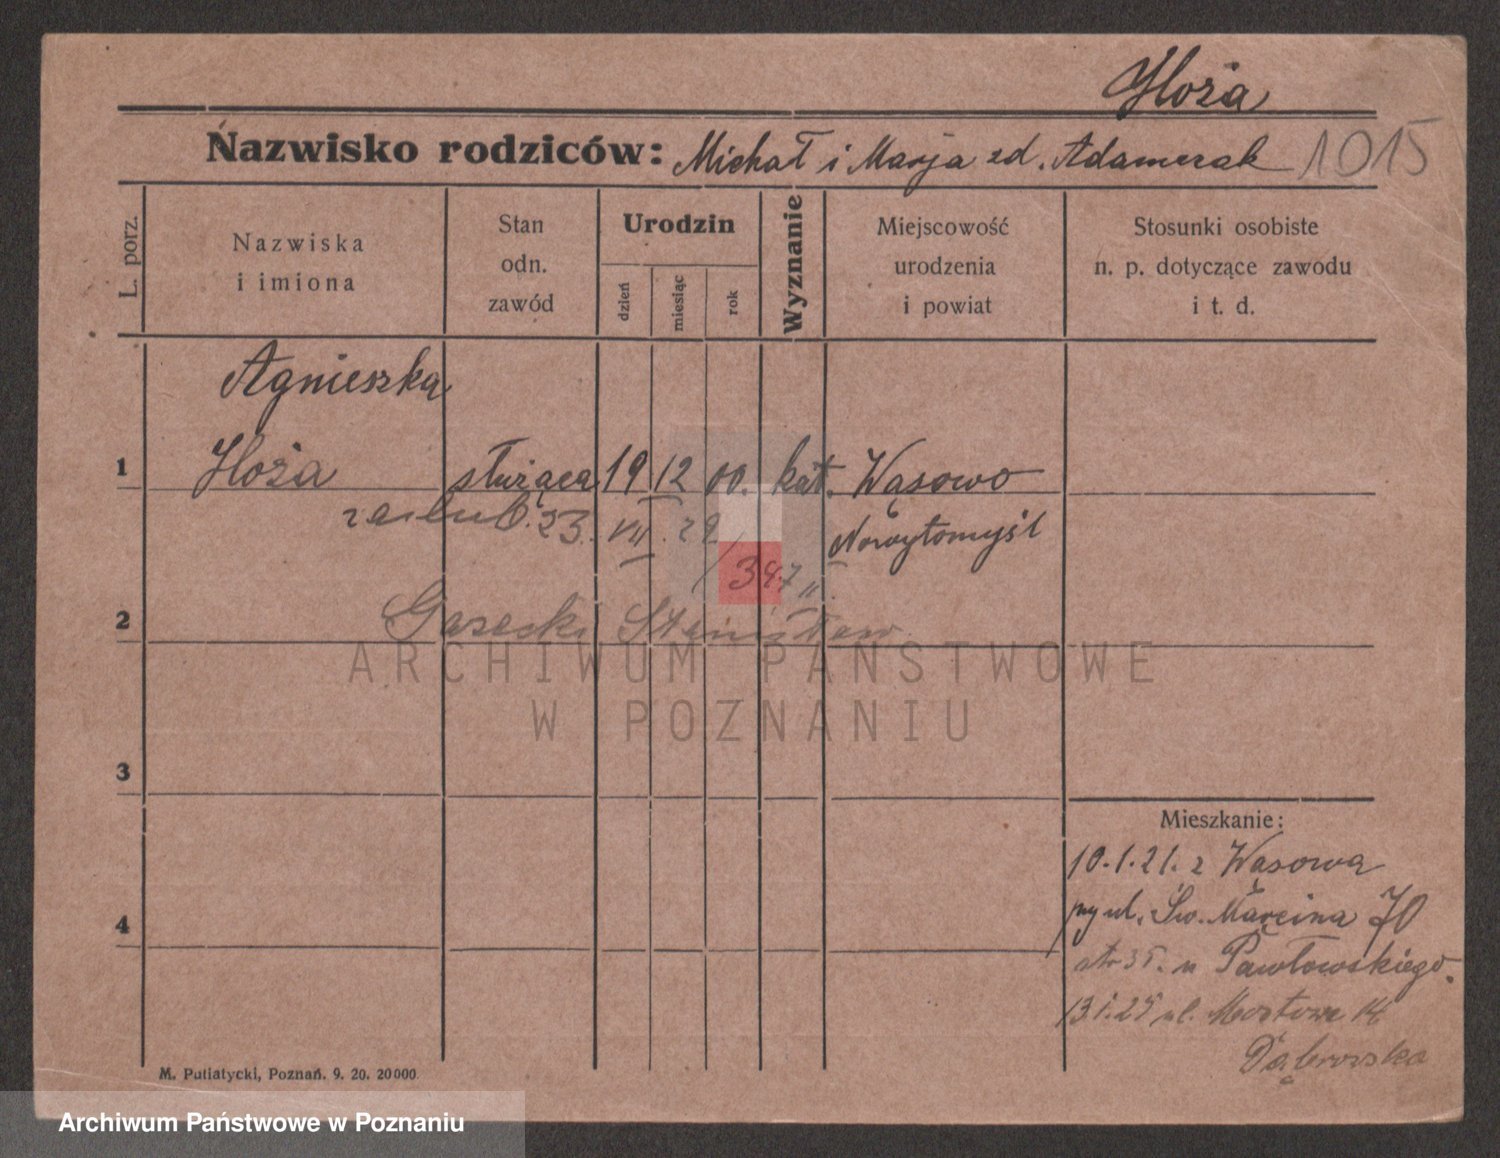 Hoża
Nazwisko rodziców: Michał i Marja zd. Adamczak 1015
L. porz.
Nazwiska
i imiona
Stan
odn.
zawód
Urodzin
dzień
miesiąc
rok
Wyznanie
Miejscowość
urodzenia
i powiat
Stosunki osobiste
n. p. dotyczące zawodu
i t. d.
Agnieszka
1 Hoża służąca 19 12 00. kat. Wąsowo
zaślub. 23. VII. 29 Nowytomyśl
/ 347 II.
2 Gasecki Stanisław
ARCHIWUM PAŃSTWOWE
W POZNANIU
3
Mieszkanie:
10.1.21. z Wąsowa
ul. Św. Marcina 70
4
u Pawłowskiego.
13.1.25 ul. Mostowa 14
Dąbrowska
M. Putiatycki, Poznań. 9. 20. 20000.
Archiwum Państwowe w Poznaniu